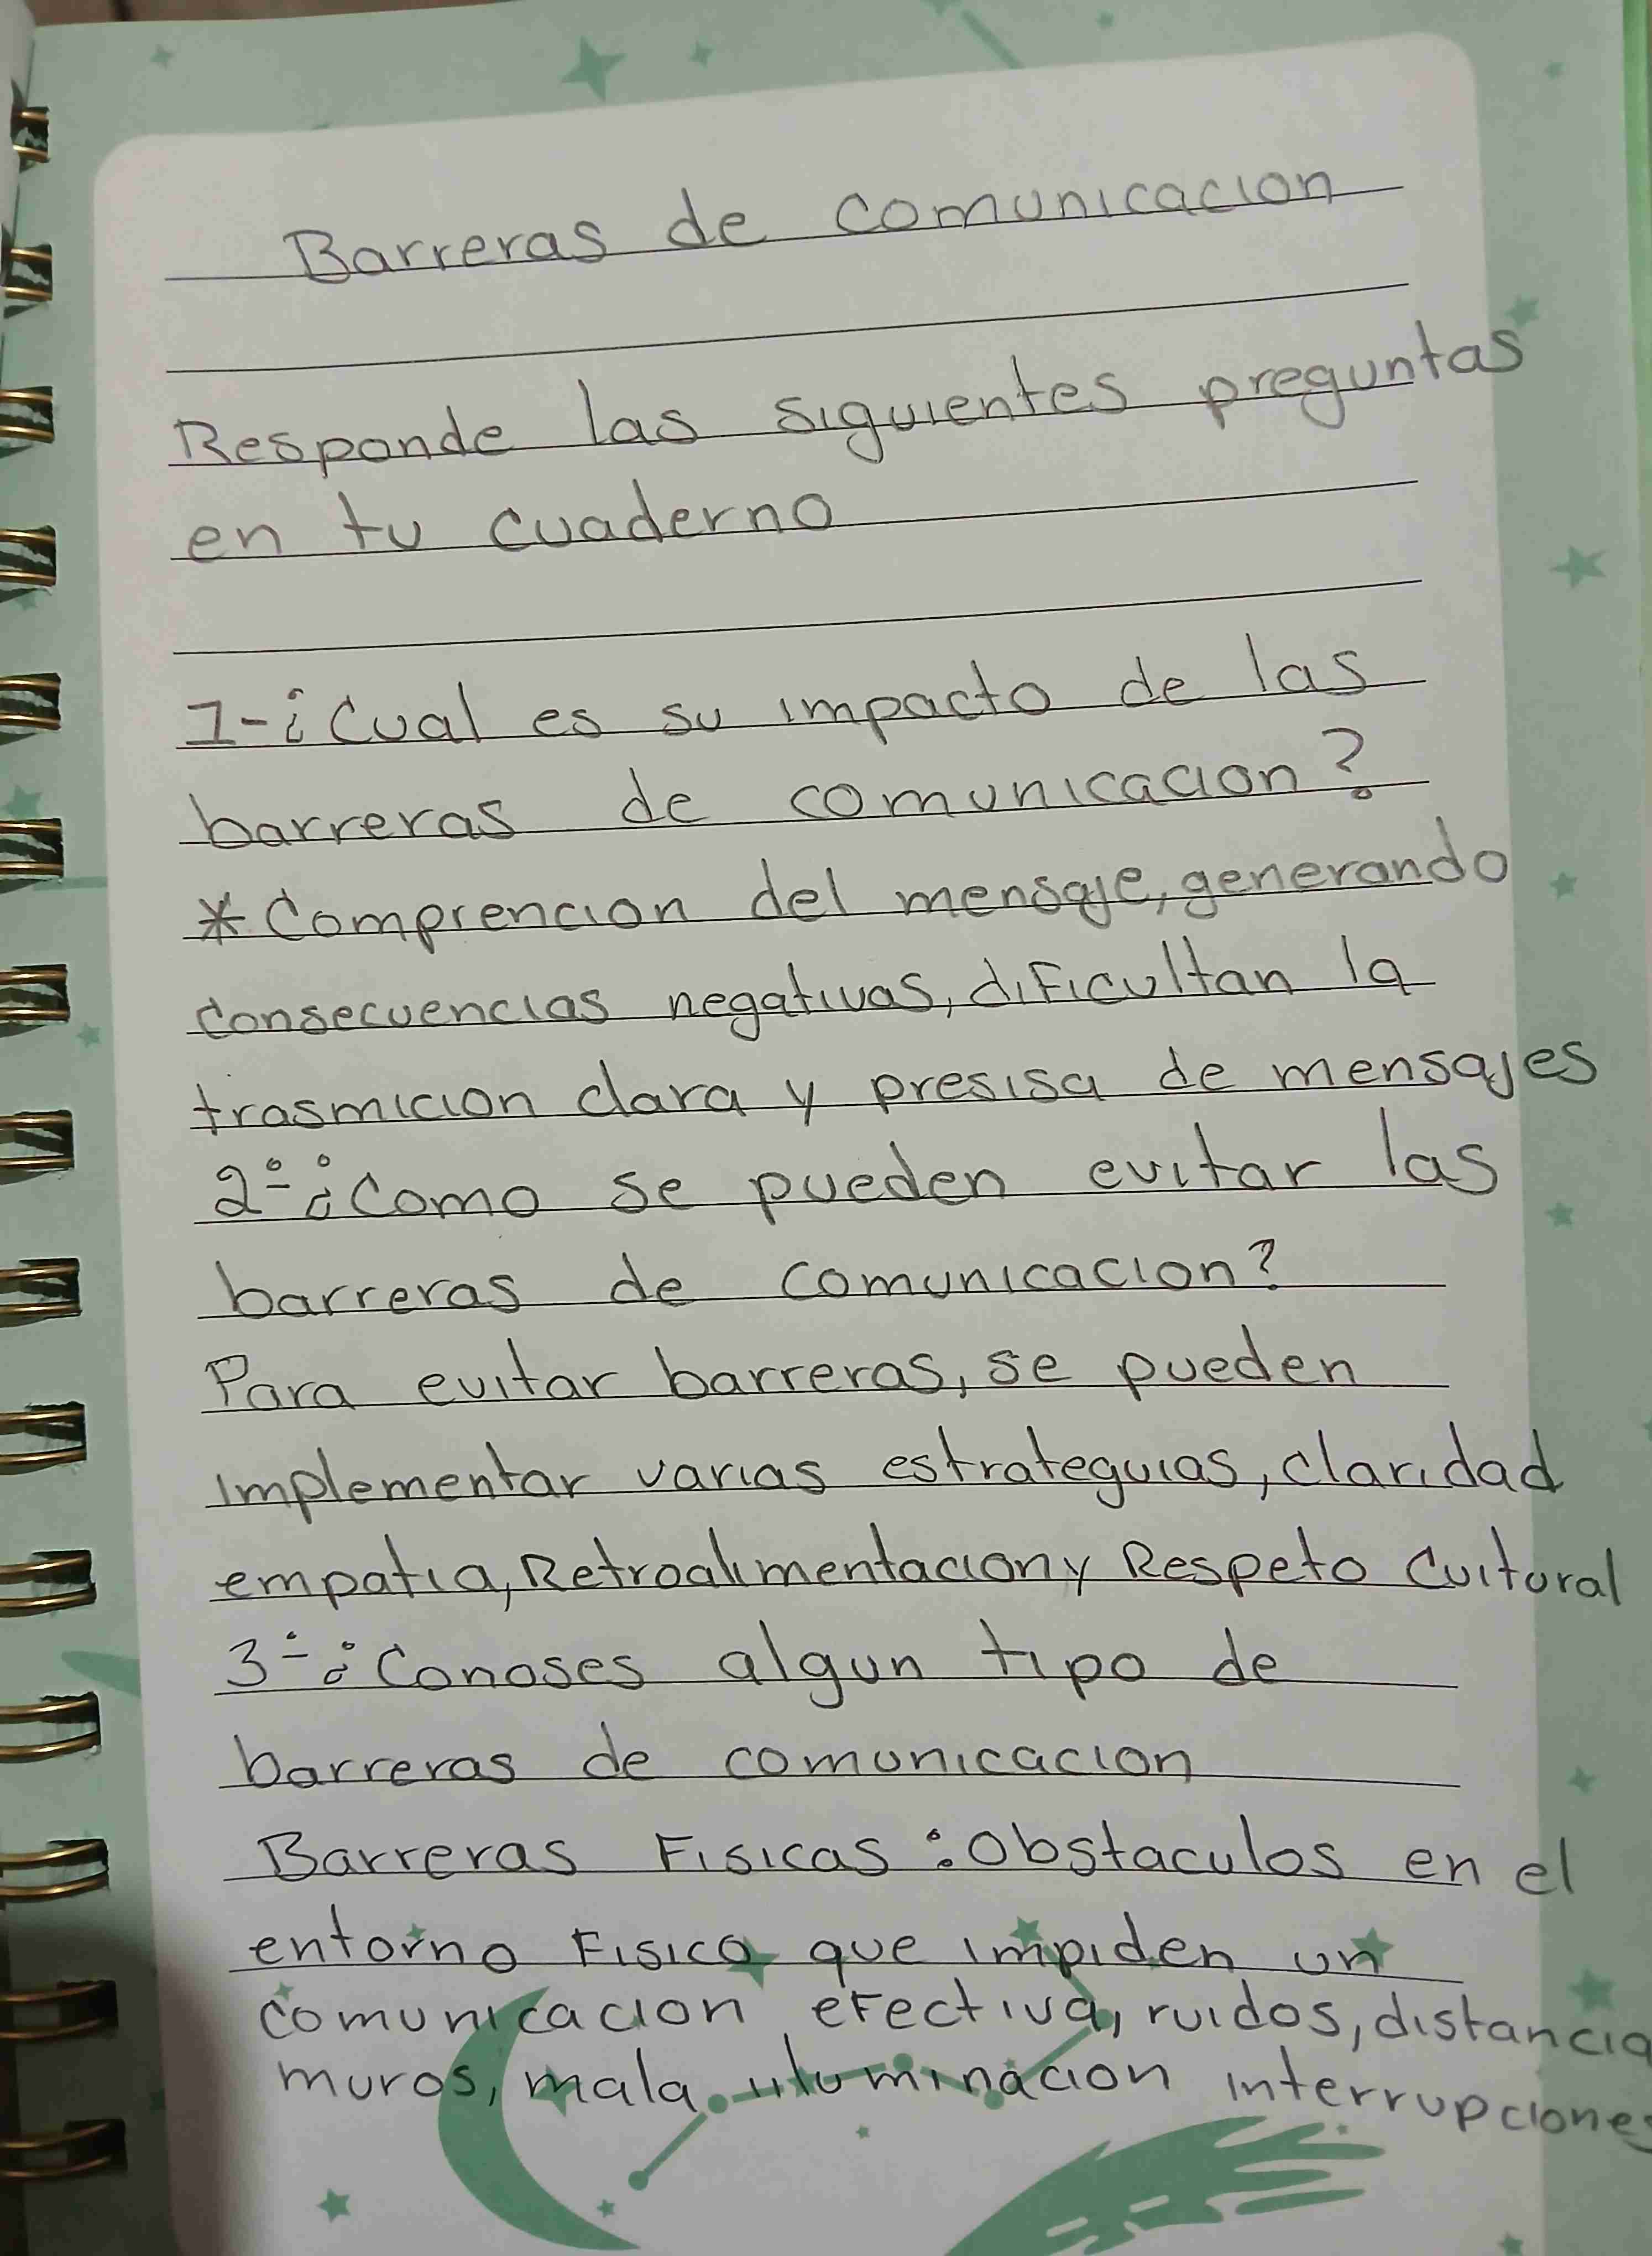 Barreras de comunicacion
Responde las siguientes preguntas
en tu cuaderno
1-¿Cual es su impacto de las
barreras de comunicacion?
*Comprencion del mensaje, generando
consecuencias negativas, dificultan la
trasmicion clara y presisa de mensajes
2÷¿Como se pueden evitar las
barreras de comunicacion?
Para evitar barreras, se pueden
implementar varias estrateguias, claridad
empatia, Retroalimentacion y Respeto Cultural
3÷¿Conoses algun tipo de
barreras de comunicacion
Barreras Fisicas: Obstaculos en el
entorno Fisico que impiden un
comunicacion efectiva, ruidos, distancia
muros, mala iluminacion interrupciones